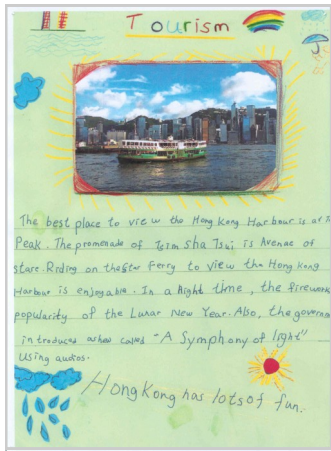 Tourism
The best place to view the Hong Kong Harbour is at
Peak. The promenade of Tsim Sha Tsui is Avenue of
stars. Riding on the Star Ferry to view the Hong Kong
Harbour is enjoyable. In a Night time, the firework
popularity of the Lunar New Year. Also, the governm
introduces ashow called "A Symphony of light"
Using audios.
Hong Kong has lots of fun.